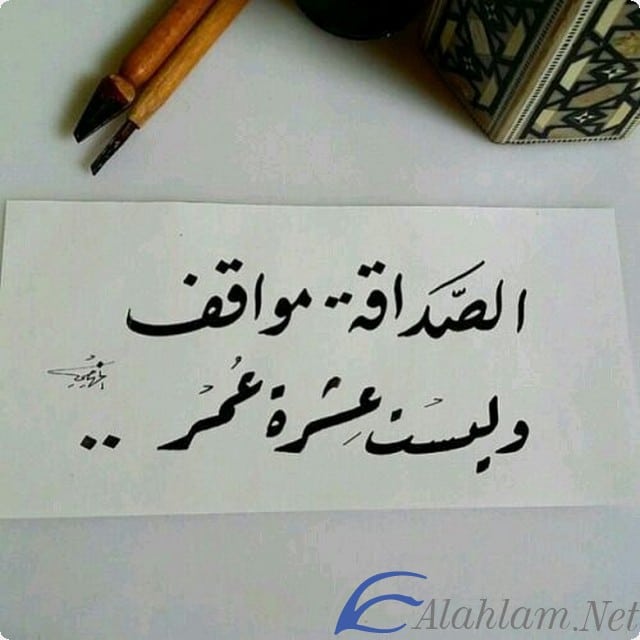 الصَّدَاقة .. مواقف
وليسْت عِشرة عُمْرْ ..
Alahlam.Net